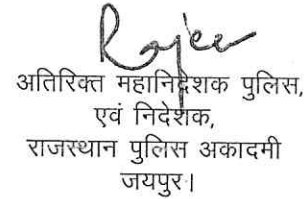 अतिरिक्त महानिदेशक पुलिस,
एवं निदेशक,
राजस्थान पुलिस अकादमी
जयपुर।